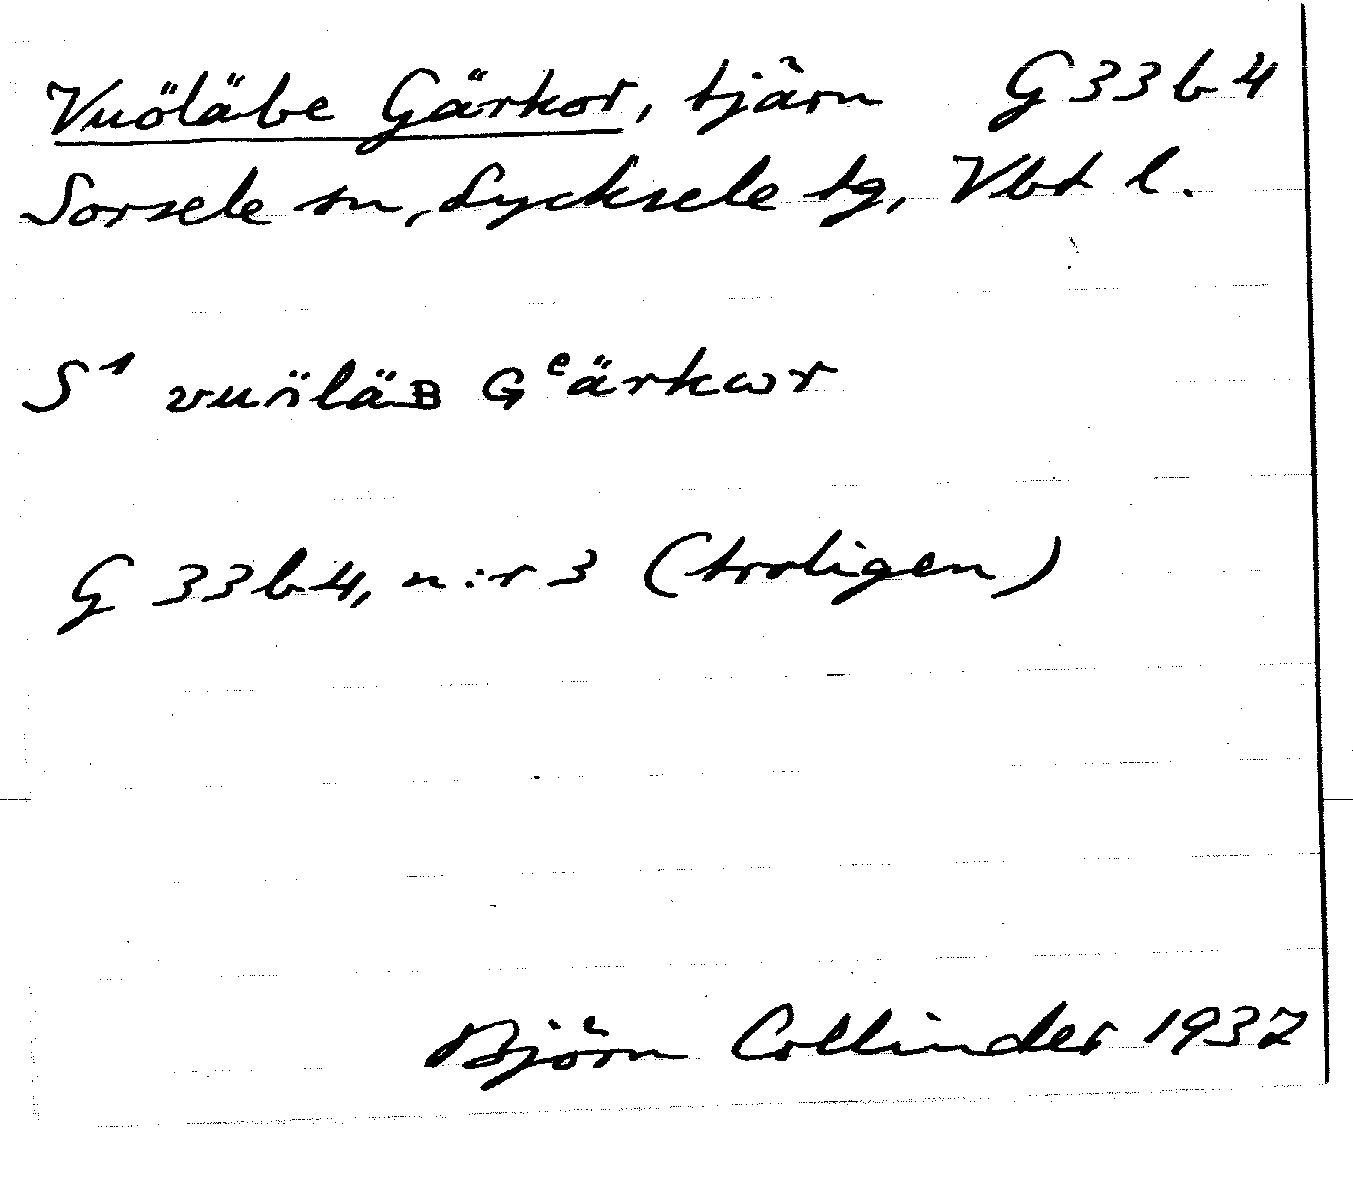 Vuöläbe Gärkor, tjärn G 33 b 4
Sorsele sn, Lycksele tg, Vbt l.
S¹ vuöläʙ Gᵉärkωr
G 33 b 4, n:r 3 (troligen)
Björn Collinder 1937